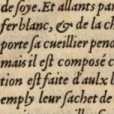 de soye. Et allants par
fer blanc, & de la ch
porte sa cueillier pend
mais il est composé c
tion est faite d'aulx b
emply leur sachet de